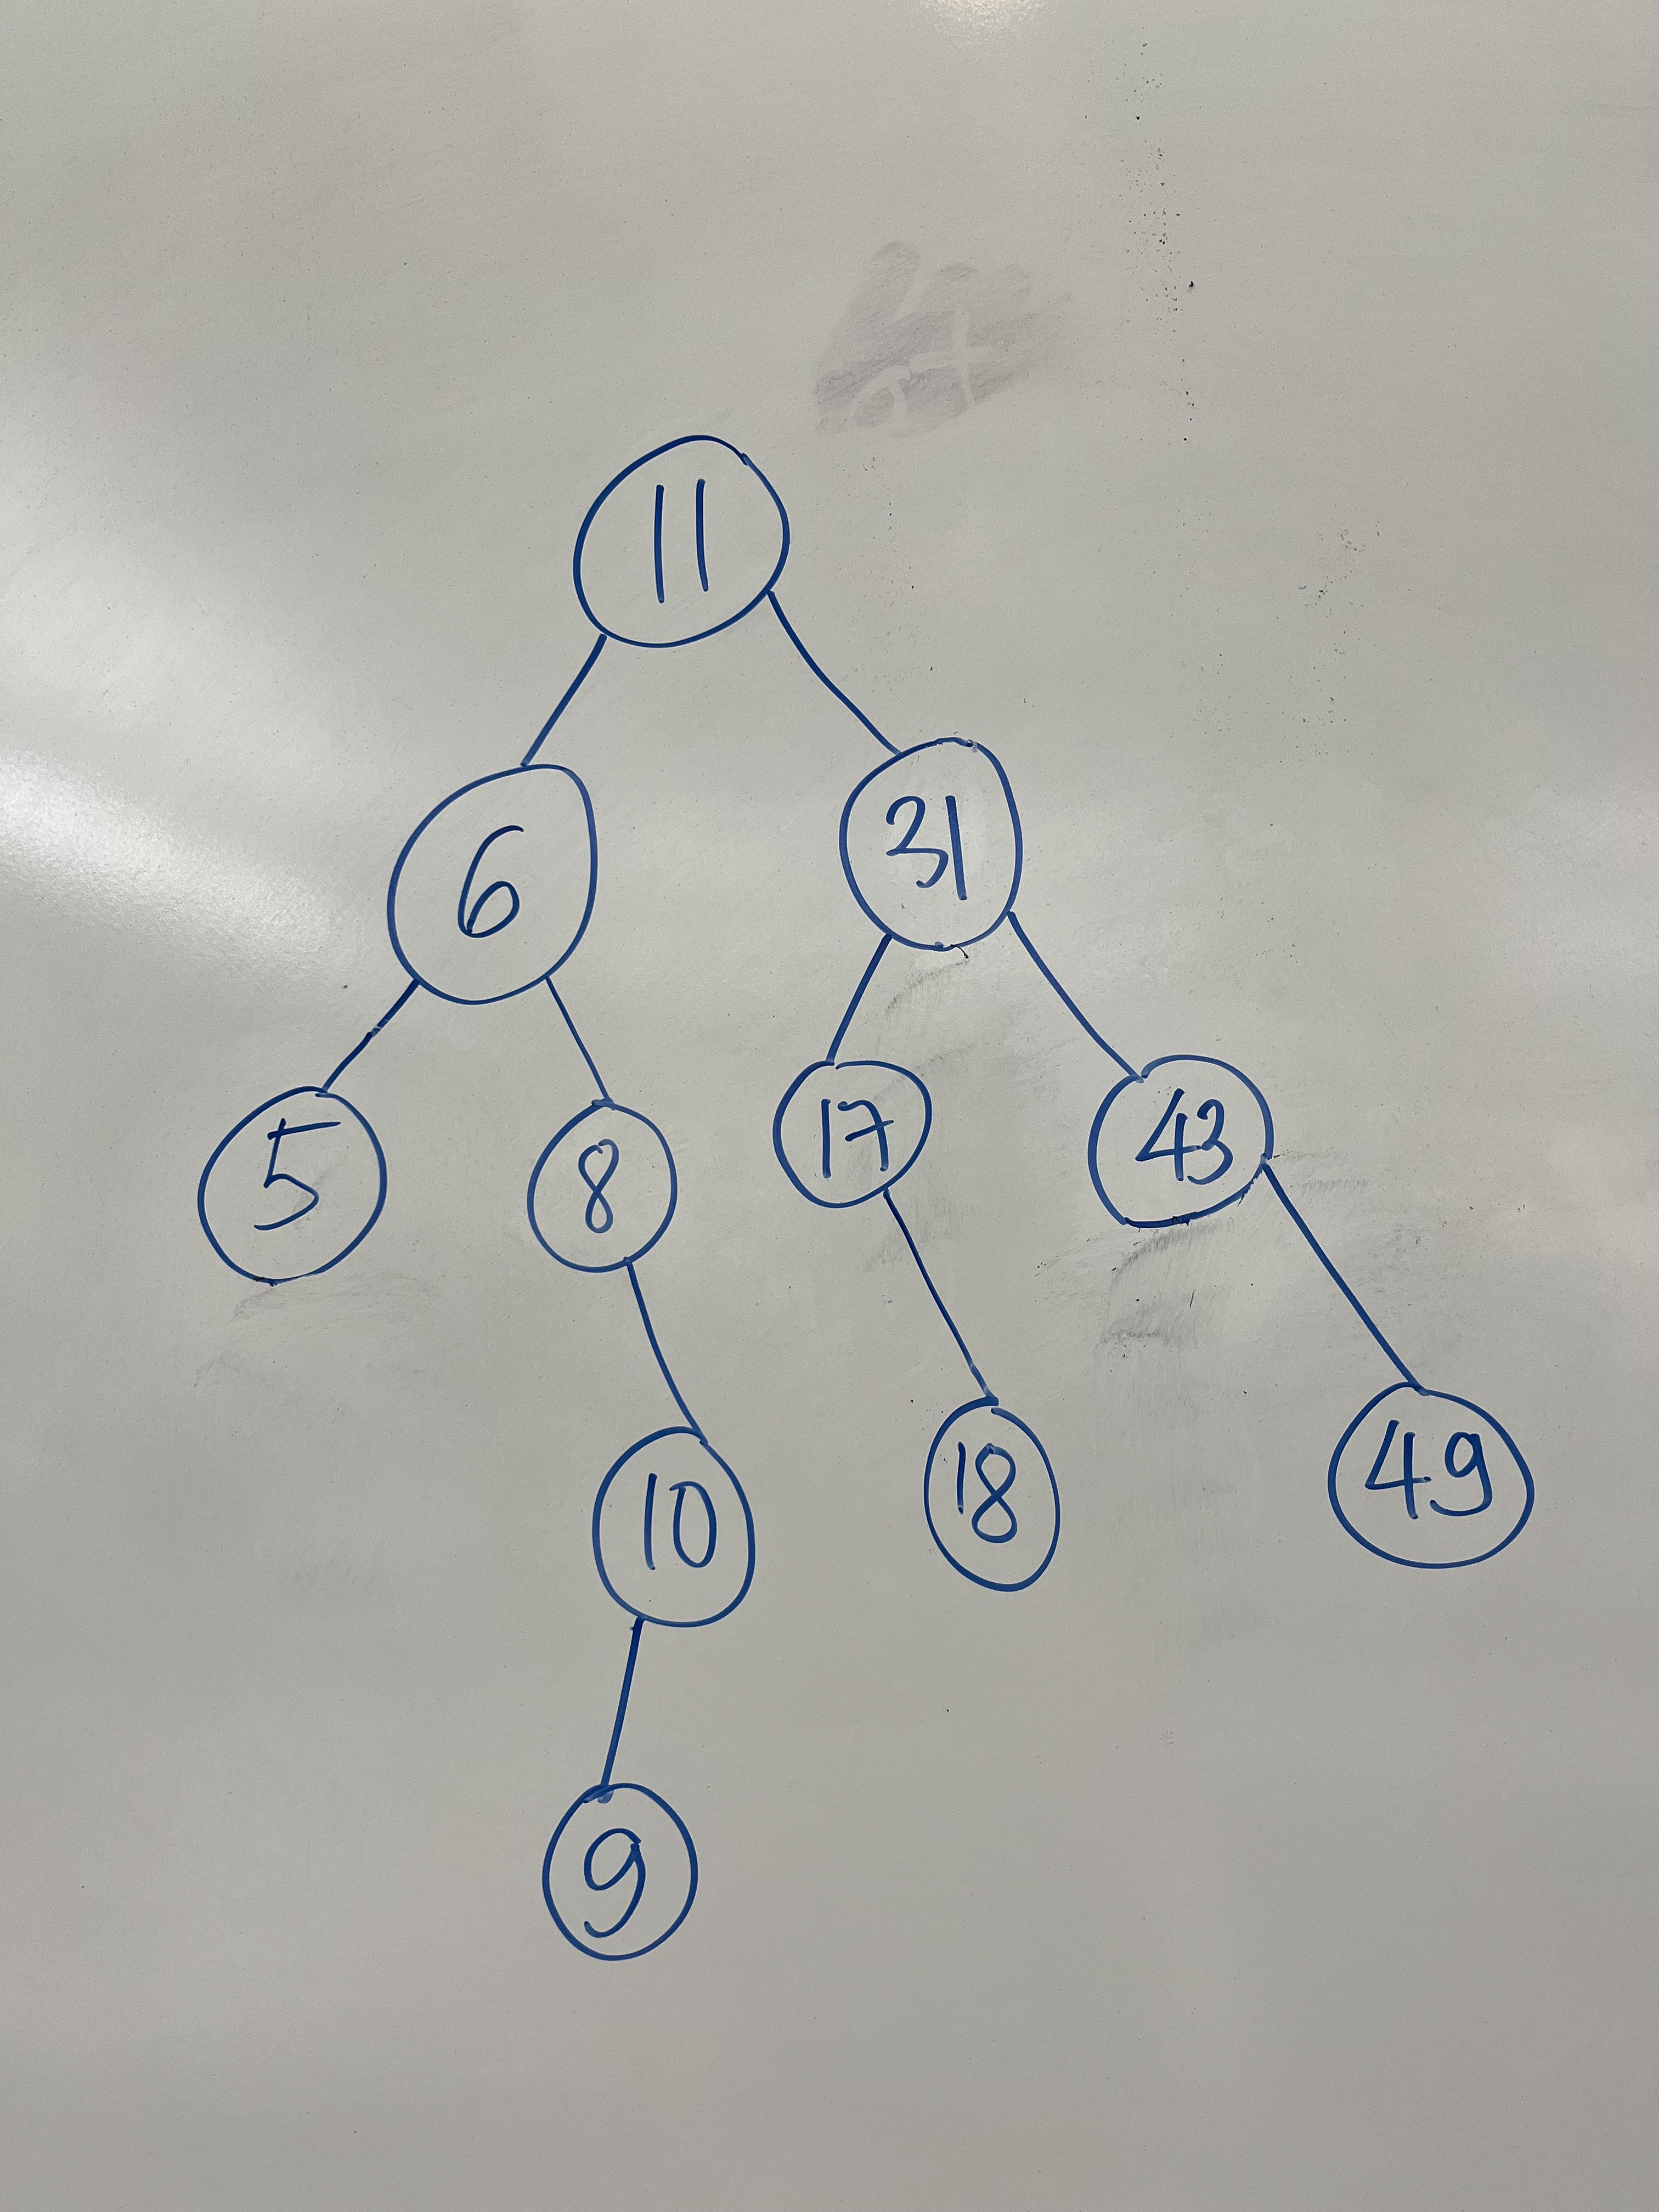 11
6 31
5 8 17 43
10 18 49
9